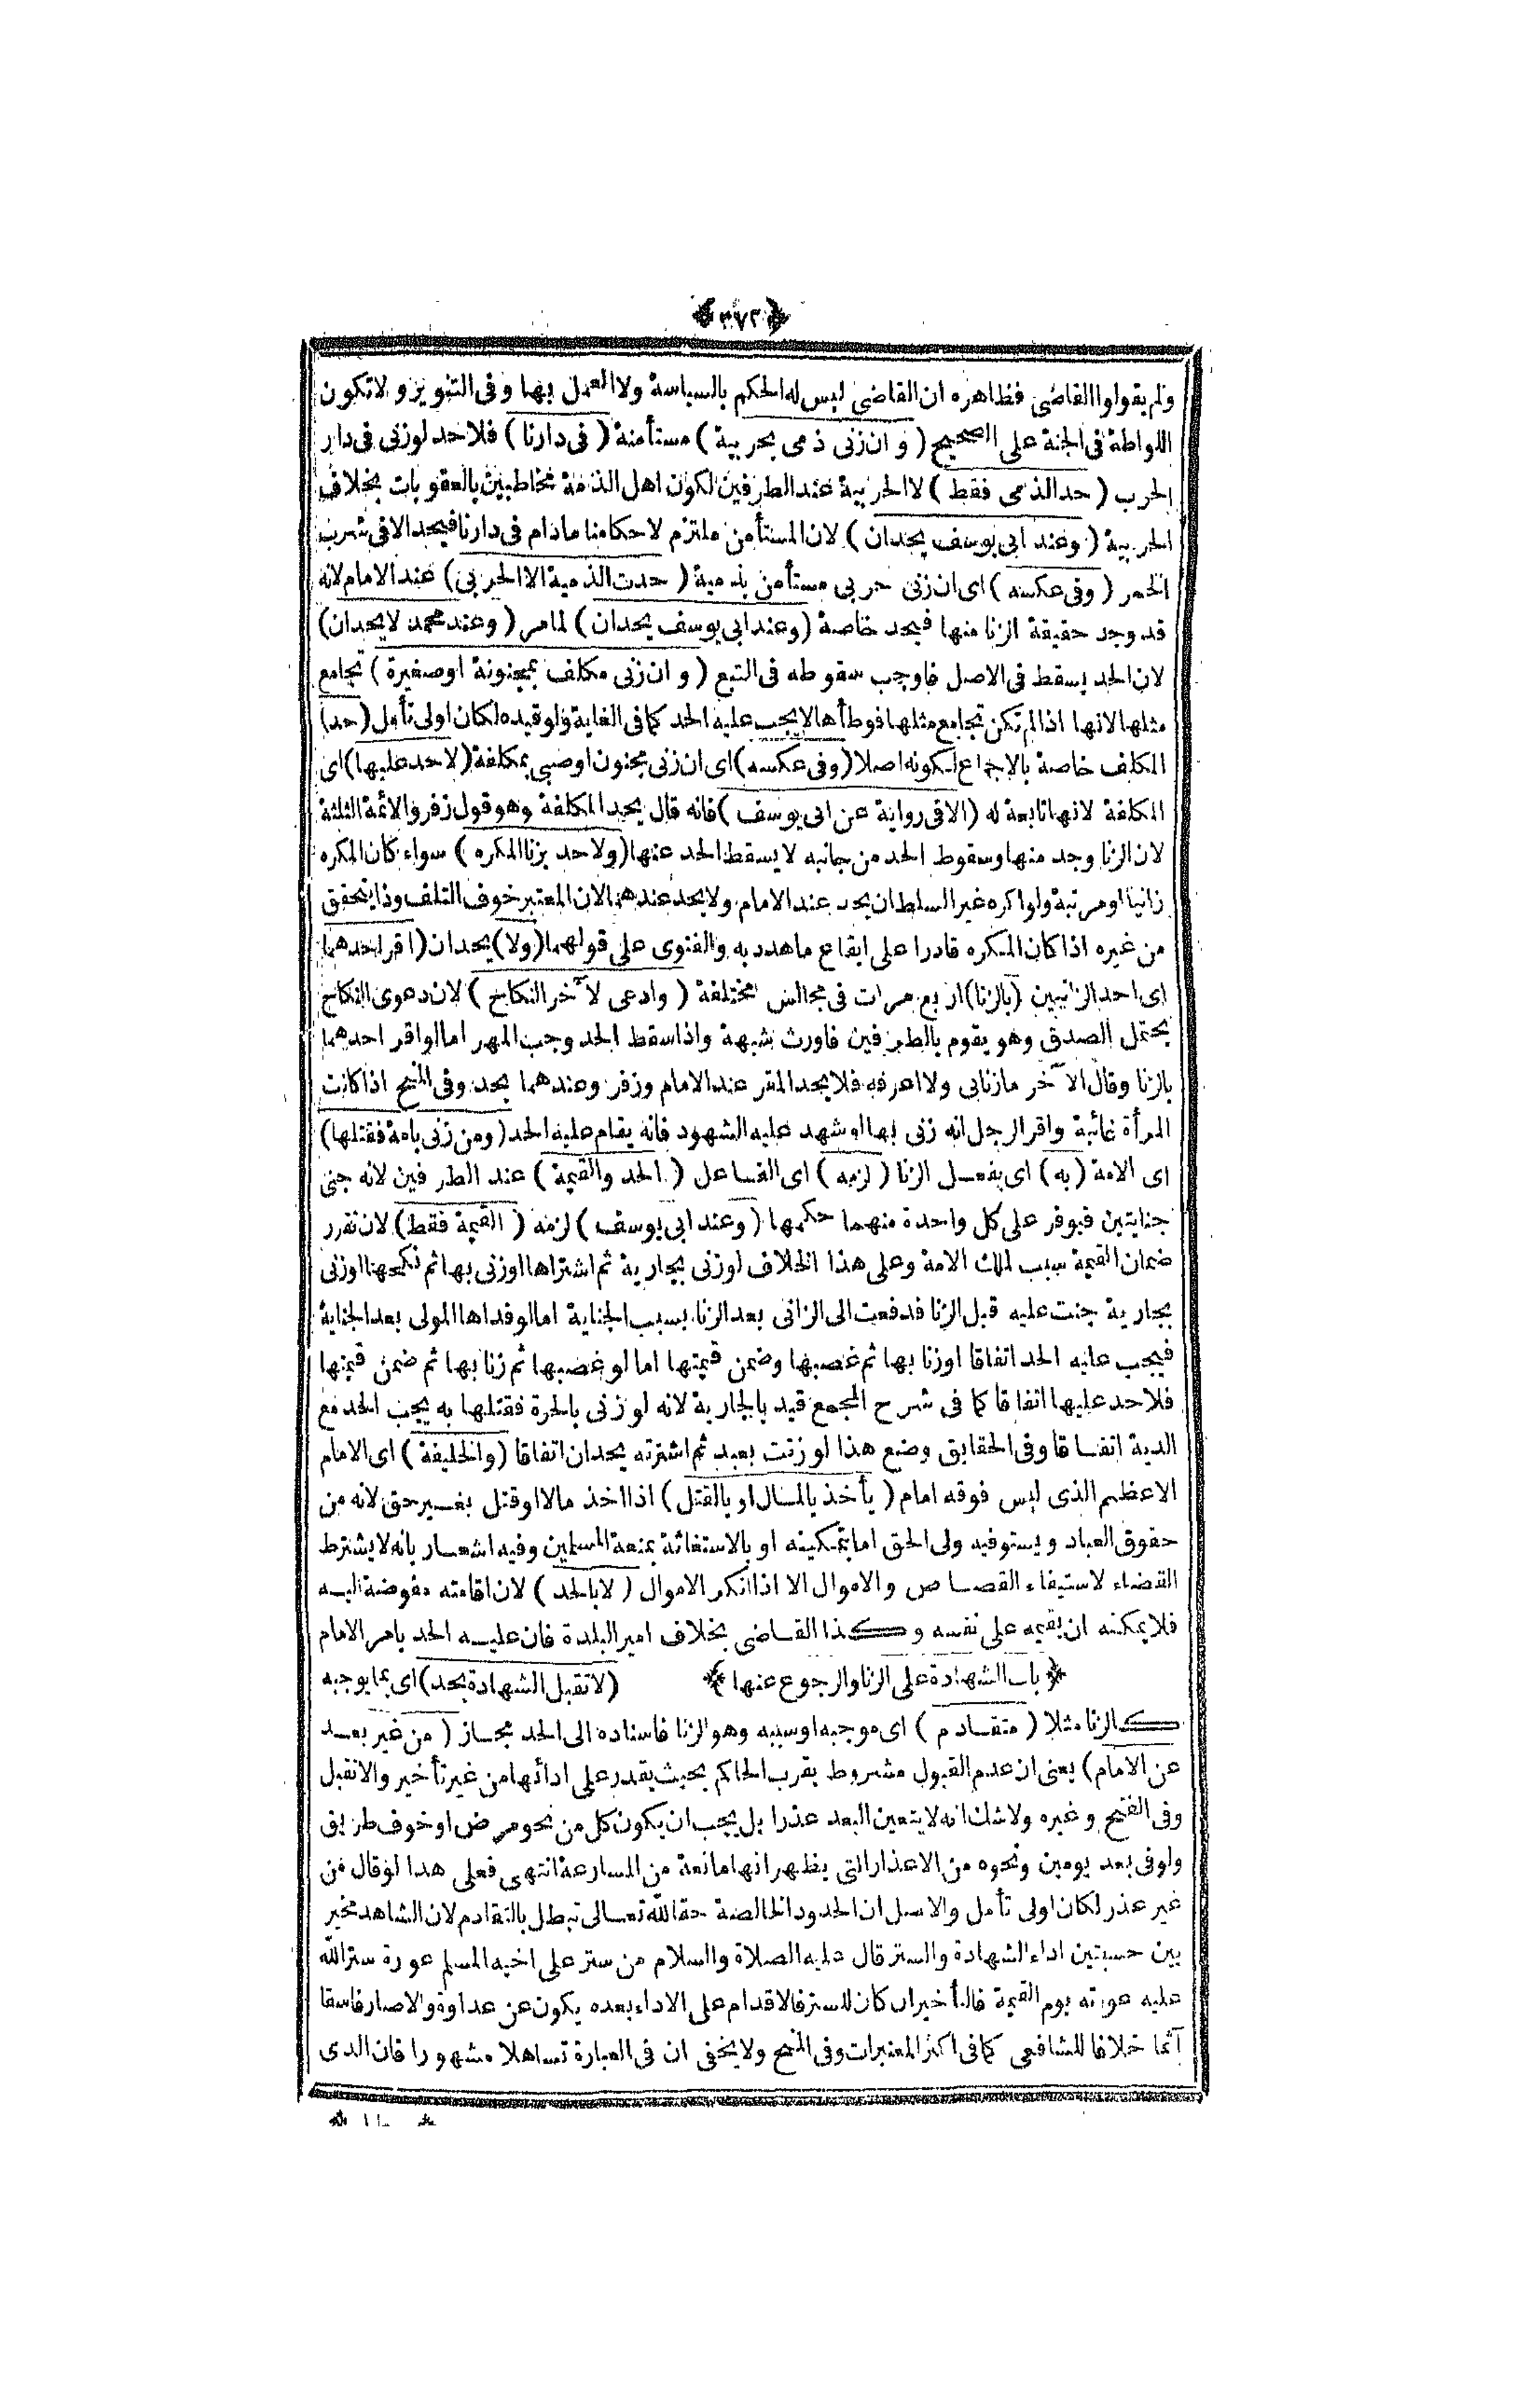 ﴿٣٧٢﴾
ولم يقولوا القاضى فظاهره ان القاضى ليس له الحكم بالسياسة ولا العمل بها وفى التنوير ولا تكون
اللواطة فى الجنة على الصحيح (وان زنى ذمى بحربية) مستأمنة (فى دارنا) فلا حد لو زنى فى دار
الحرب (حد الذمى فقط) لا الحربية عند الطرفين لكون اهل الذمة مخاطبين بالعقوبات بخلاف
الحربية (وعند ابى يوسف يحدان) لان المستأمن ملتزم لاحكامنا مادام فى دارنا فيحد الا فى شرب
الخمر (وفى عكسه) اى ان زنى حربى مستأمن بذمية (حدت الذمية لا الحربى) عند الامام لانه
قد وجد حقيقة الزنا منها فيحد خاصة (وعند ابى يوسف يحدان) لما مر (وعند محمد لا يحدان)
لان الحد يسقط فى الاصل فاوجب سقوطه فى التبع (وان زنى مكلف بمجنونة او صغيرة) تجامع
مثلها لانها اذا لم تكن تجامع مثلها فوطأها لا يجب عليه الحد كما فى الغاية ولو قيده لكان اولى تأمل (حد)
المكلف خاصة بالاجماع لكونه اصلا (وفى عكسه) اى ان زنى مجنون او صبى بمكلفة (لا حد عليها) اى
المكلفة لانها تابعة له (الا فى رواية عن ابى يوسف) فانه قال يحد المكلفة وهو قول زفر والائمة الثلثة
لان الزنا وجد منها وسقوط الحد من جانبه لا يسقط الحد عنها (ولا حد بزنا المكره) سواء كان المكره
زانيا او مرنية ولو اكره غير السلطان يحد عند الامام ولا يحد عندهما لان المعتبر خوف التلف وذا يتحقق
من غيره اذا كان المكره قادرا على ايقاع ما هدد به والفتوى على قولهما (ولا) يحدان (اقر احدهما
اى احد الزانيين (بالزنا) اربع مرات فى مجالس مختلفة (وادعى لآخر النكاح) لان دعوى النكاح
يحتمل الصدق وهو يقوم بالطرفين فاورث شبهة واذا سقط الحد وجب المهر اما لو اقر احدهما
بالزنا وقال الآخر ما زنابى ولا اعرفه فلا يحد المقر عند الامام وزفر وعندهما يحد وفى المنح اذا كانت
المرأة غائبة واقر الرجل انه زنى بها او شهد عليه الشهود فانه يقام عليه الحد (ومن زنى بامة فقتلها)
اى الامة (به) اى بفعل الزنا (لزمه) اى الفاعل (الحد والقيمة) عند الطرفين لانه جنى
جنايتين فيوفر على كل واحدة منهما حكمها (وعند ابى يوسف) لزمه (القيمة فقط) لان تقرر
ضمان القيمة سبب لملك الامة وعلى هذا الخلاف لو زنى بجارية ثم اشتراها او زنى بها ثم نكحها او زنى
بجارية جنت عليه قبل الزنا فدفعت الى الزانى بعد الزنا بسبب الجناية اما لو فداها المولى بعد الجناية
فيجب عليه الحد اتفاقا او زنا بها ثم غصبها وضمن قيمتها اما لو غصبها ثم زنا بها ثم ضمن قيمتها
فلا حد عليها اتفاقا كما فى شرح المجمع قيد بالجارية لانه لو زنى بالحرة فقتلها به يجب الحد مع
الدية اتفاقا وفى الحقايق وضع هذا لو زنت بعبد ثم اشترته يحدان اتفاقا (والخليفة) اى الامام
الاعظم الذى ليس فوقه امام (يأخذ بالمال او بالقتل) اذا اخذ مالا او قتل بغير حق لانه من
حقوق العباد ويستوفيه ولى الحق اما بتمكينه او بالاستغاثة بمنعة المسلمين وفيه اشعار بانه لا يشترط
القضاء لاستيفاء القصاص والاموال الا اذا انكر الاموال (لا بالحد) لان اقامته مفوضة اليه
فلا يمكنه ان يقيمه على نفسه وكذا القاضى بخلاف امير البلدة فان عليه الحد بامر الامام
﴿باب الشهادة على الزنا والرجوع عنها﴾ (لا تقبل الشهادة بحد) اى بما يوجبه
كالزنا مثلا (متقادم) اى موجبه او سببه وهو الزنا فاسناده الى الحد مجاز (من غير بعد
عن الامام) يعنى ان عدم القبول مشروط بقرب الحاكم بحيث يقدر على ادائها من غير تأخير والا تقبل
وفى الفتح وغيره ولا شك انه لا يتعين البعد عذرا بل يجب ان يكون كل من نحو مرض او خوف طريق
ولو فى بعد يومين ونحوه من الاعذار التى يظهر انها مانعة من المسارعة انتهى فعلى هدا لو قال من
غير عذر لكان اولى تأمل والاصل ان الحدود الخالصة حقا لله تعالى تبطل بالتقادم لان الشاهد مخير
بين حسبتين اداء الشهادة والستر قال عليه الصلاة والسلام من ستر على اخيه المسلم عورة ستر الله
عليه عورته يوم القيمة فالتأخير ان كان للستر فالاقدام على الاداء بعده يكون عن عداوة والا صار فاسقا
آثما خلافا للشافعى كما فى اكثر المعتبرات وفى المنح ولا يخفى ان فى العبارة تساهلا مشهورا فان الذى